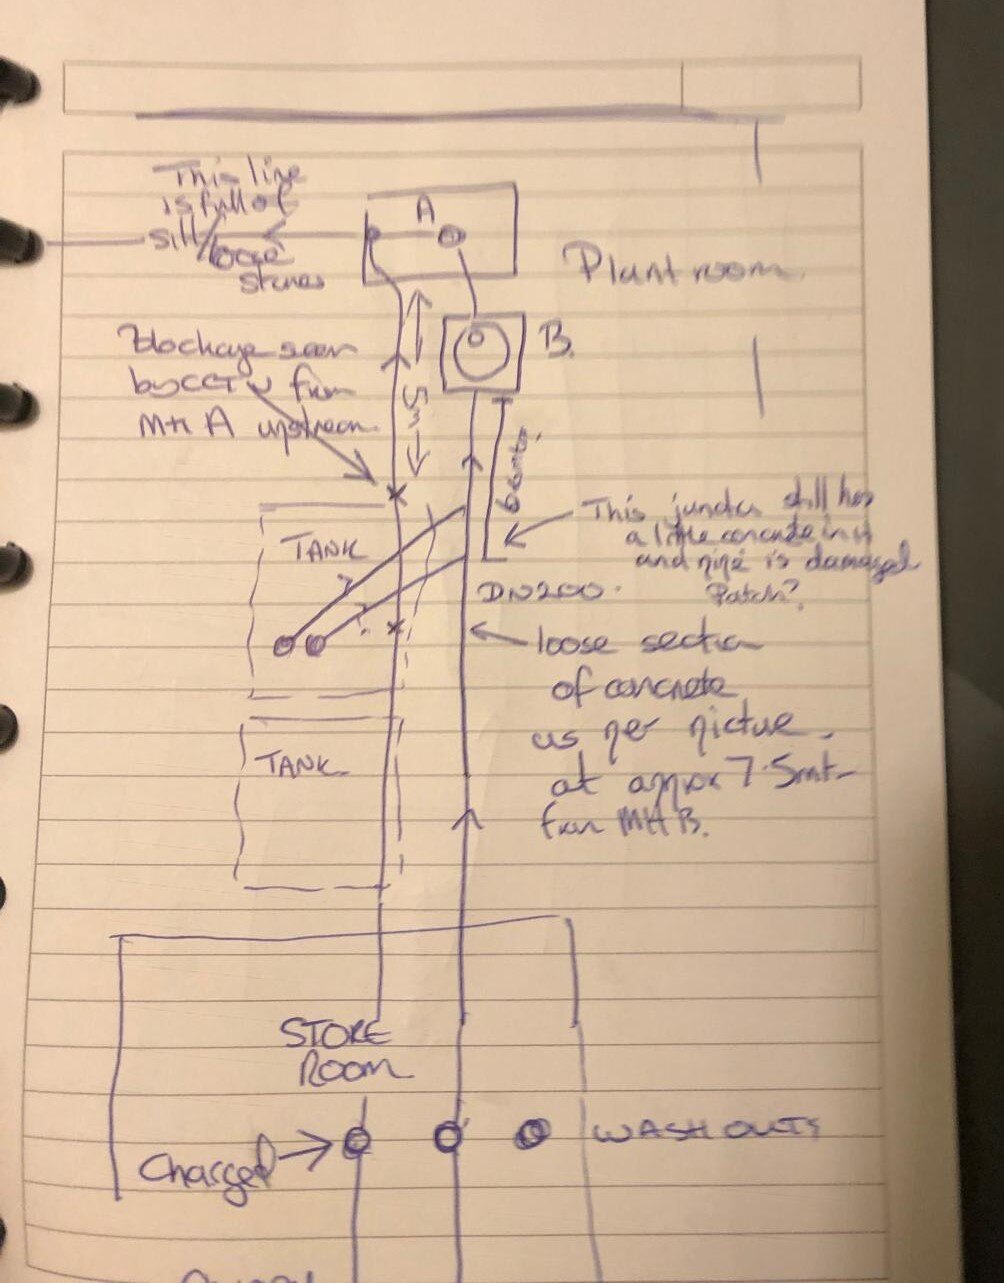 This line
is full of
silt/
loose
stones
A
Plant room
B.
blockage seen
by CCTV from
MH A upstream.
5m
6mts.
This junction still has
a little concrete in it
and pipe is damaged
Patch?
TANK
DN200.
loose section
of concrete
as per picture.
at approx 7.5mt
from MH B.
TANK
STORE
ROOM
Charged
WASHOUTS